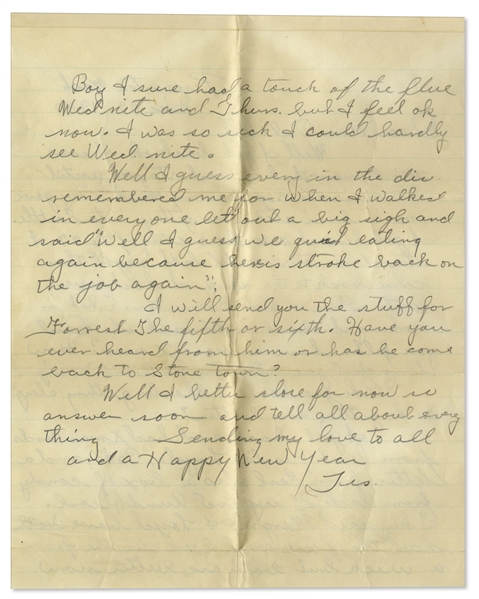 Boy I sure had a touch of the flue
Wed nite and Thurs. but I feel ok
now. I was so sick I could hardly
see Wed. nite.
Well I guess every in the div.
remembered me for when I walked
in everyone let out a big sigh and
said "Well I guess we quit eating
again because heris stroke back on
the job again";
I will send you the stuff for
Forrest The fifth or sixth. Have you
ever heard from him or has he come
back to Stone town?
Well I better close for now so
answer soon and tell all about every
thing Sending my love to all
and a Happy New Year